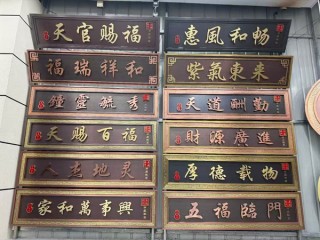 天官赐福
惠風和畅
福瑞祥和
紫氣東来
鐘靈毓秀
天道酬勤
天赐百福
財源廣進
人杰地灵
厚德载物
家和萬事興
五福臨門